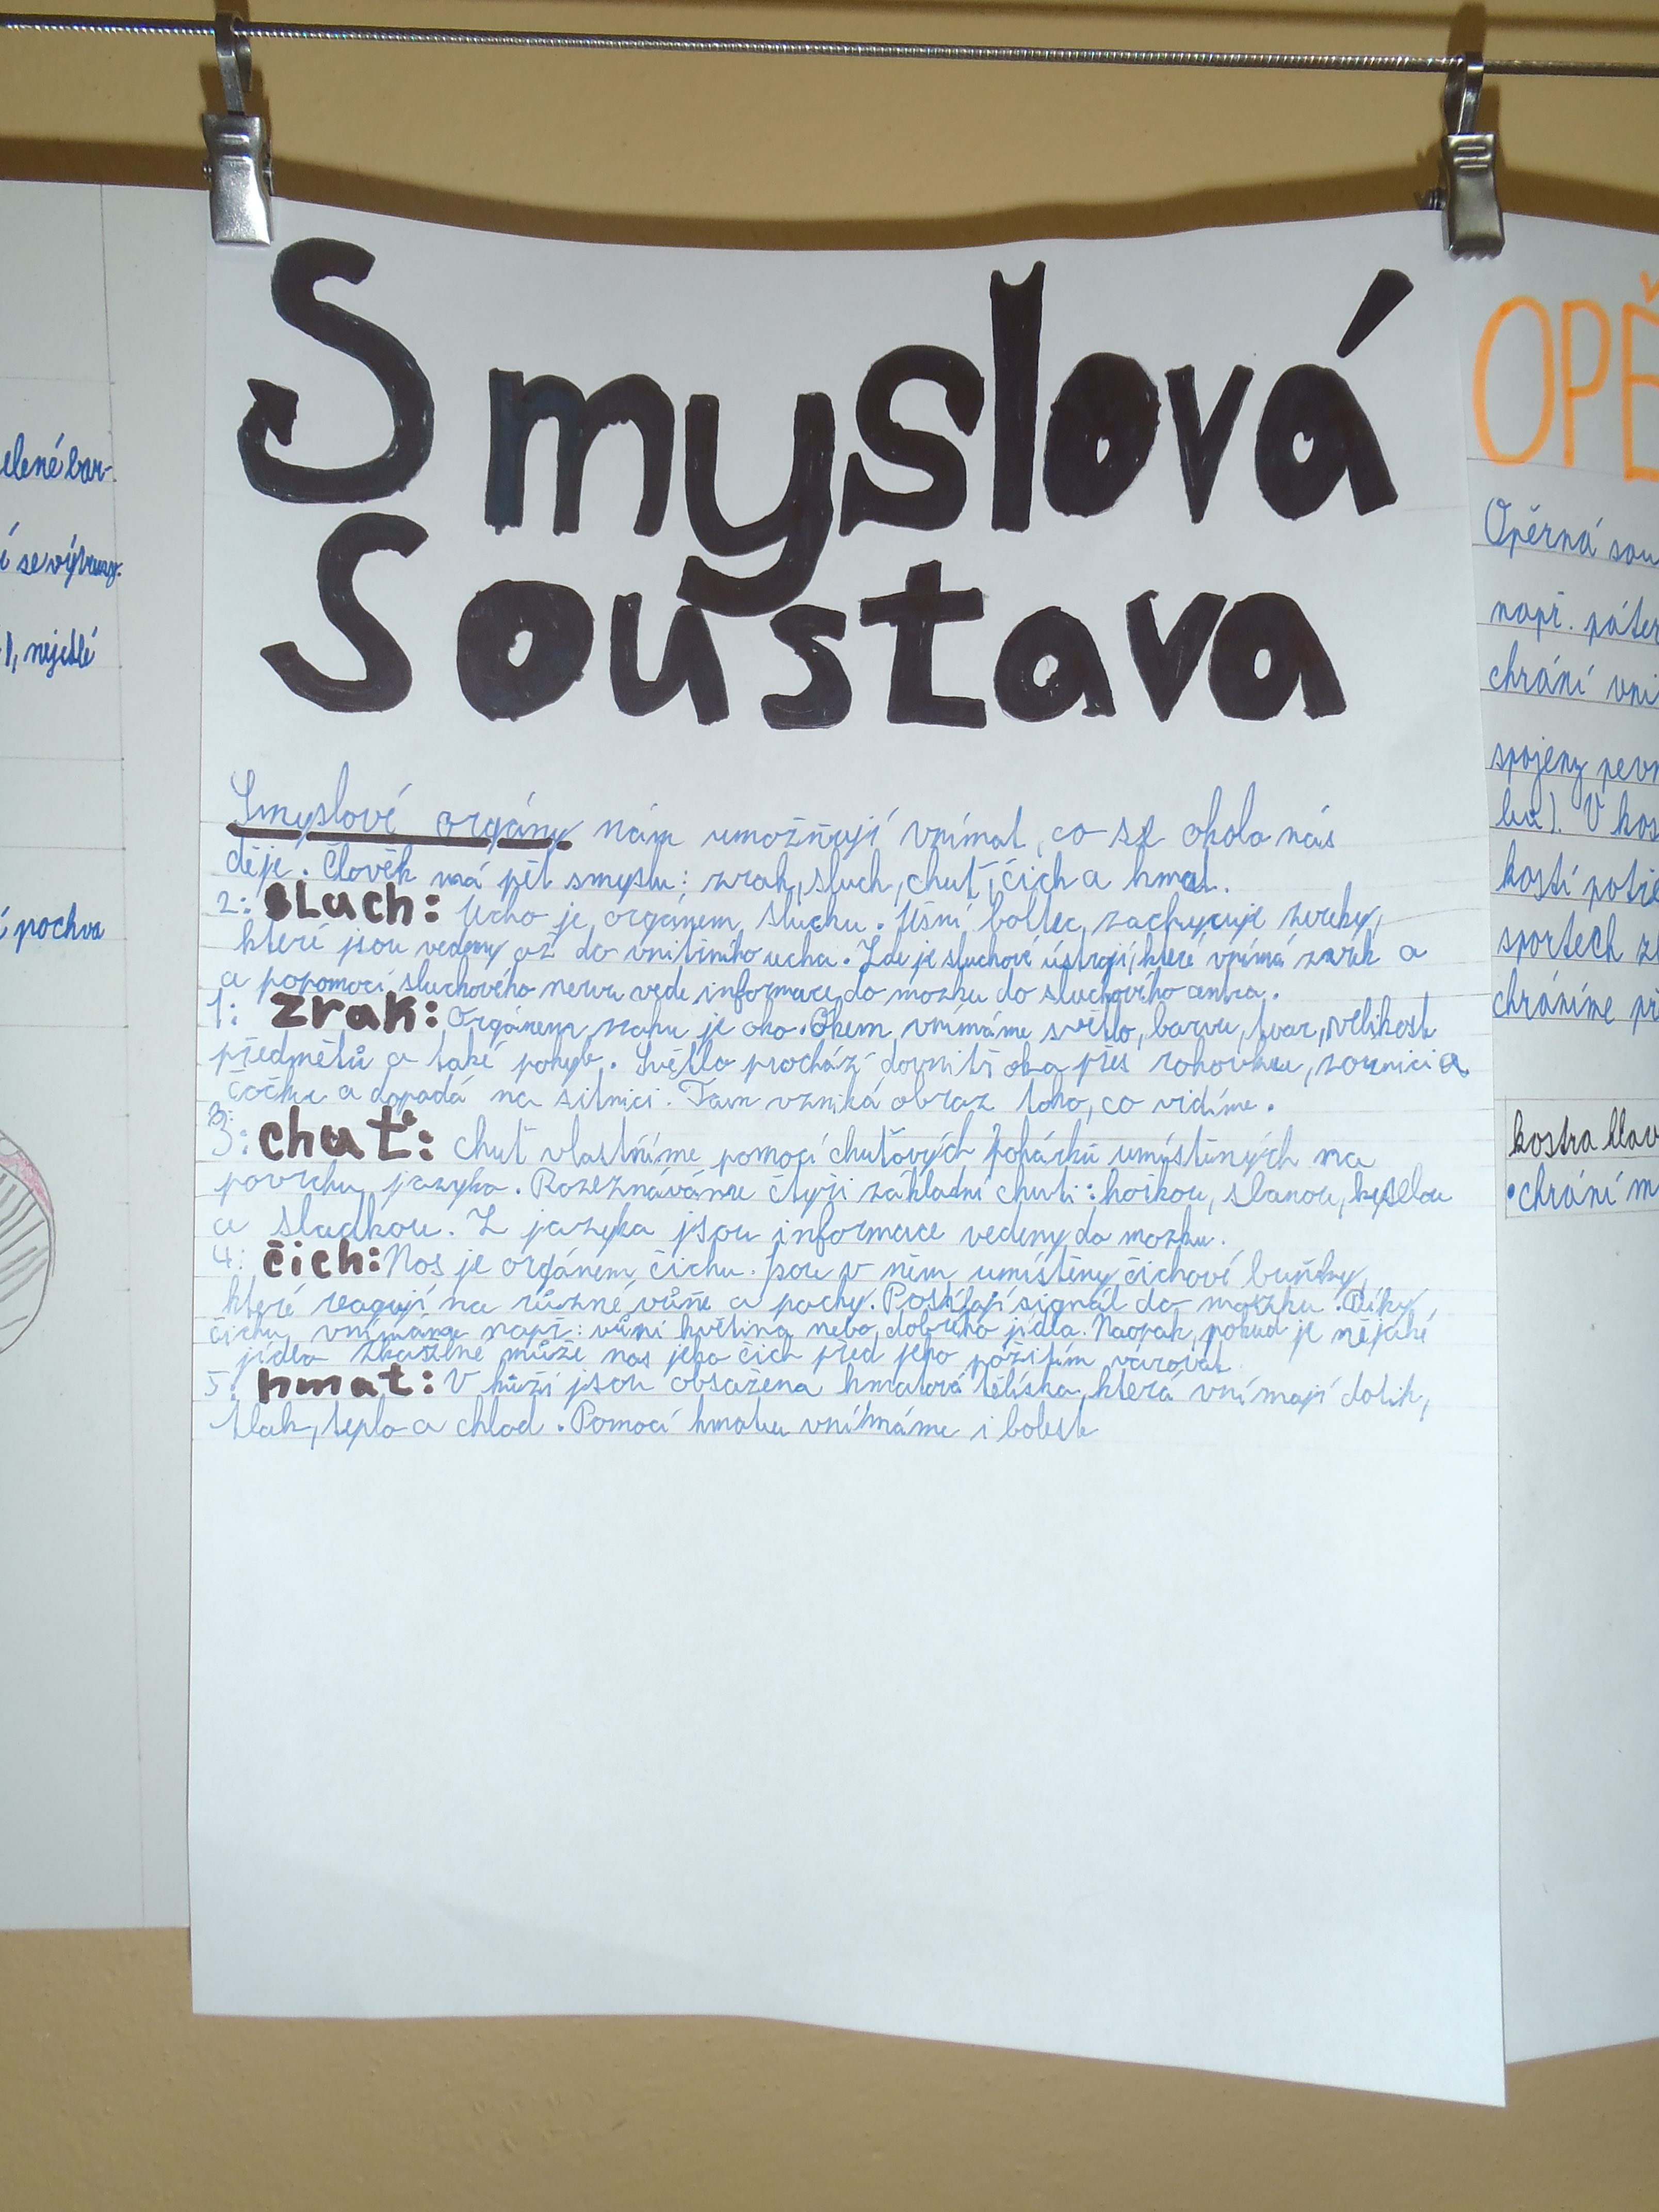 elené bar-
í se výtrusy.
), nejedlé
í pochva
Smyslová
Soustava
Smyslové orgány nám umožňují vnímat, co se okolo nás
děje. Člověk má pět smyslu: zrak, sluch, chuť, čich a hmat.
2: sLuch: Ucho je orgánem sluchu. Ušní boltec zachycuje zvuky,
které jsou vedeny až do vnitřního ucha. Zde je sluchové ústrojí, které vnímá zvuk a
a popomocí sluchového nervu vede informace do mozku do sluchového centra.
1: zrak: Orgánem zraku je oko. Okem vnímáme světlo, barvu, tvar, velikost
předmětů a také pohyb. Světlo prochází dovnitř oka přes rohovku, zornici a
čočku a dopadá na sítnici. Tam vzniká obraz toho, co vidíme.
3: chuť: Chuť vlastníme pomocí chuťových pohárků umístěných na
povrchu jazyka. Rozeznáváme čtyři základní chuti: hořkou, slanou, kyselou
a sladkou. Z jazyka jsou informace vedeny do mozku.
4: čich: Nos je orgánem čichu. Jsou v něm umístěny čichové buňky,
které reagují na různé vůně a pachy. Posílají signál do mozku. Díky
čichu vnímáme např: vůni květiny nebo dobrého jídla. Naopak, pokud je nějaké
jídlo zkažené může nás jeho čich před jeho požitím varovat.
5: hmat: V kůži jsou obsažena hmatová tělíska, která vnímají dotik,
tlak, teplo a chlad. Pomocí hmatu vnímáme i bolest
OPĚ
Opěrná sou
např. páteř
chrání vni
spojeny pevn
lu). V kos
kostí potře
sportech zl
chráníme př
kostra hlav
•chrání m